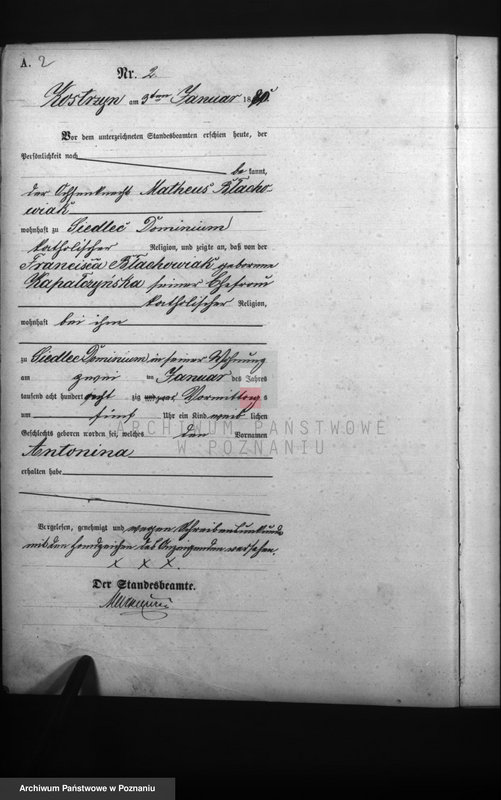 A. 2
Nr. 2.
Kostrzyn am 3ten Januar 1890.
Vor dem unterzeichneten Standesbeamten erschien heute, der
Persönlichkeit nach
be kannt,
der Ochsenknecht Matheus Błacho-
wiak
wohnhaft zu Siedlec Dominium
katholischer Religion, und zeigte an, daß von der
Francisca Błachowiak geborene
Kapałczyńska seiner Ehefrau
katholischer Religion,
wohnhaft bei ihm
zu Siedlec Dominium in seiner Wohnung
am zwei ten Januar des Jahres
tausend acht hundert zig Vormittag s
um fünf Uhr ein Kind weib lichen
Geschlechts geboren worden sei, welches den Vornamen
Antonina
erhalten habe
Vorgelesen, genehmigt und wegen Schreibensunkunde
mit den Handzeichen des Anzeigenden versehen.
x x x.
Der Standesbeamte.
ARCHIWUM PAŃSTWOWE
W POZNANIU
Archiwum Państwowe w Poznaniu